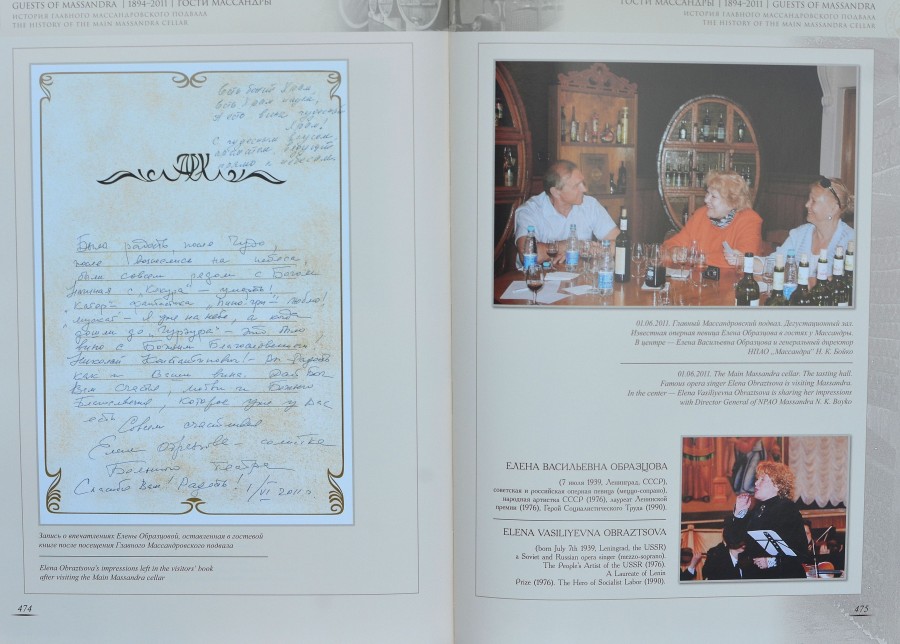 GUESTS OF MASSANDRA | 1894–2011 | ГОСТИ МАССАНДРЫ
ИСТОРИЯ ГЛАВНОГО МАССАНДРОВСКОГО ПОДВАЛА
THE HISTORY OF THE MAIN MASSANDRA CELLAR
Есть
Есть
И есть вина
С
Была радость, после Чудо,
после на небеса,
были совсем рядом с Богом
Начиная с "Кокура" —
"Кагор" —
"мускат" — Я уже на небе, а когда
дошли до —
вино с Божьим Благословеньем!
Николай Константинович! — Вы радость
как и Ваши вина. Дай Бог
Вам счастья, любви и Божьего
Благословения, которое уже у Вас
есть
Совсем счастливая
Елена Образцова — солистка
Большого театра
Спасибо Вам! Радость! 1/VI 2011 г.
Запись о впечатлениях Елены Образцовой, оставленная в гостевой
книге после посещения Главного Массандровского подвала
Elena Obraztsova's impressions left in the visitors' book
after visiting the Main Massandra cellar
474
ГОСТИ МАССАНДРЫ | 1894–2011 | GUESTS OF MASSANDRA
ИСТОРИЯ ГЛАВНОГО МАССАНДРОВСКОГО ПОДВАЛА
THE HISTORY OF THE MAIN MASSANDRA CELLAR
01.06.2011. Главный Массандровский подвал. Дегустационный зал.
Известная оперная певица Елена Образцова в гостях у Массандры.
В центре — Елена Васильевна Образцова и генеральный директор
НПАО „Массандра" Н. К. Бойко
01.06.2011. The Main Massandra cellar. The tasting hall.
Famous opera singer Elena Obraztsova is visiting Massandra.
In the center — Elena Vasiliyevna Obraztsova is sharing her impressions
with Director General of NPAO Massandra N. K. Boyko
ЕЛЕНА ВАСИЛЬЕВНА ОБРАЗЦОВА
(7 июля 1939, Ленинград, СССР),
советская и российская оперная певица (меццо-сопрано),
народная артистка СССР (1976), лауреат Ленинской
премии (1976), Герой Социалистического Труда (1990).
ELENA VASILIYEVNA OBRAZTSOVA
(born July 7th 1939, Leningrad, the USSR)
a Soviet and Russian opera singer (mezzo-soprano).
The People's Artist of the USSR (1976).
A Laureate of Lenin
Prize (1976). The Hero of Socialist Labor (1990).
475